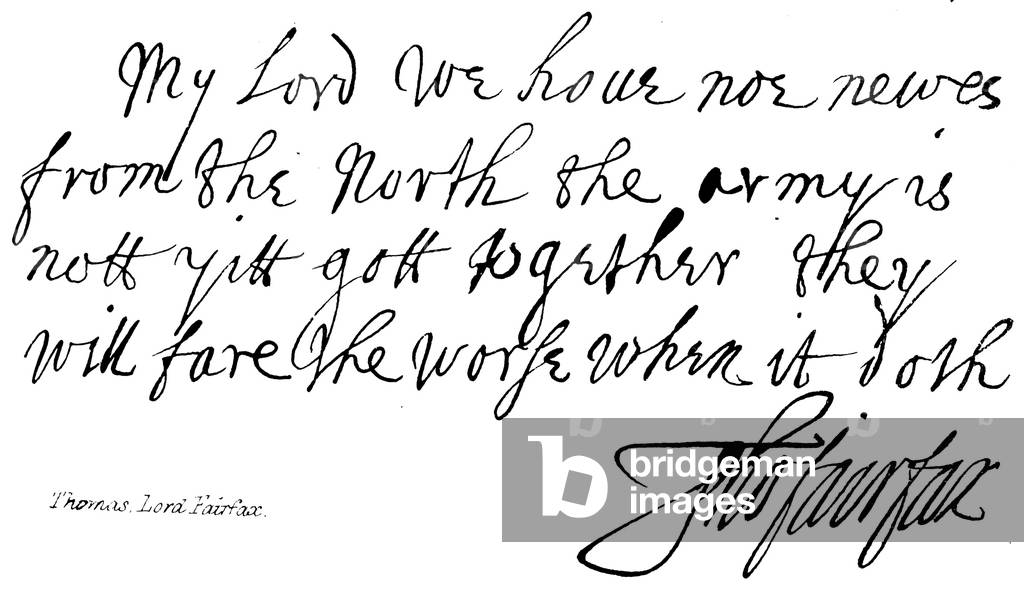 My Lord We haue noe newes
from the North the army is
nott yitt gott together they
will fare the worse when it doth
Tho ffairfax
Thomas, Lord Fairfax.
bridgeman
images